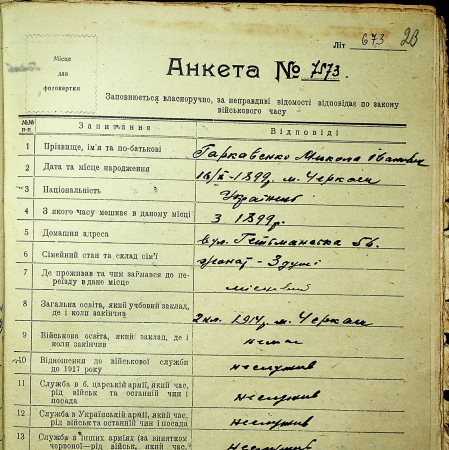 Літ 673 23
Місце
для
фотокартки
Анкета № 7573.
Заповнюється власноручно, за неправдиві відомості відповідає по закону
військового часу
№№ п-п Запитання Відповіді
1 Прізвище, ім'я та по-батькові Гаркавенко Микола Іванович
2 Дата та місце народження 1899р. м. Черкаси
3 Національність Українець
4 З якого часу мешкає в даному місці З 1899р.
5 Домашня адреса вул. Гетьманська 56.
6 Сімейний стан та склад сім'ї жонат - 3 душі
7 Де проживав та чим займався до пе-
реїзду в дане місце місцевий
8 Загальна освіта, який учбовий заклад,
де і коли закінчив 2 кл. 1914 м. Черкаси
9 Військова освіта, який заклад, де і
коли закінчив немає
10 Відношення до військової служби
до 1917 року неслужив
11 Служба в б. царській армії, який час,
рід військ та останній чин і
посада неслужив
12 Служба в Українській армії, який час,
рід військ та останній чин і посада неслужив
13 Служба в інших арміях (за винятком
червоної—рід військ, який час, неслужив